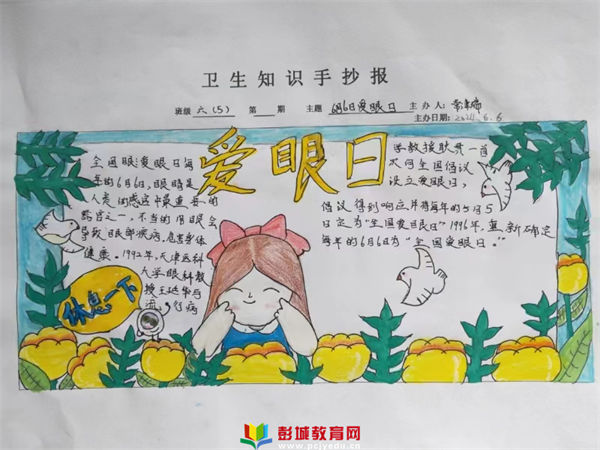 卫生知识手抄报
班级 六(5) 第 期 主题 6月6日爱眼日 主办人:
主办日期: 2024.6.6
爱眼日
全国眼:爱眼日每
年的6月6日,眼睛是
人类的感官中最重要的
器官之一,不当的用眼会
导致眼部疾病,危害身体
健康。1992年,天津医科
大学眼科教
授王延华与
流行病
学教授耿贯一首
次向全国倡议
设立爱眼日,
倡议得到响应并将每年的5月5
日定为"全国爱眼日"1996年,重新确定
每年的6月6日为"全国爱眼日。"
休息一下
彭城教育网
www.pcjyedu.com